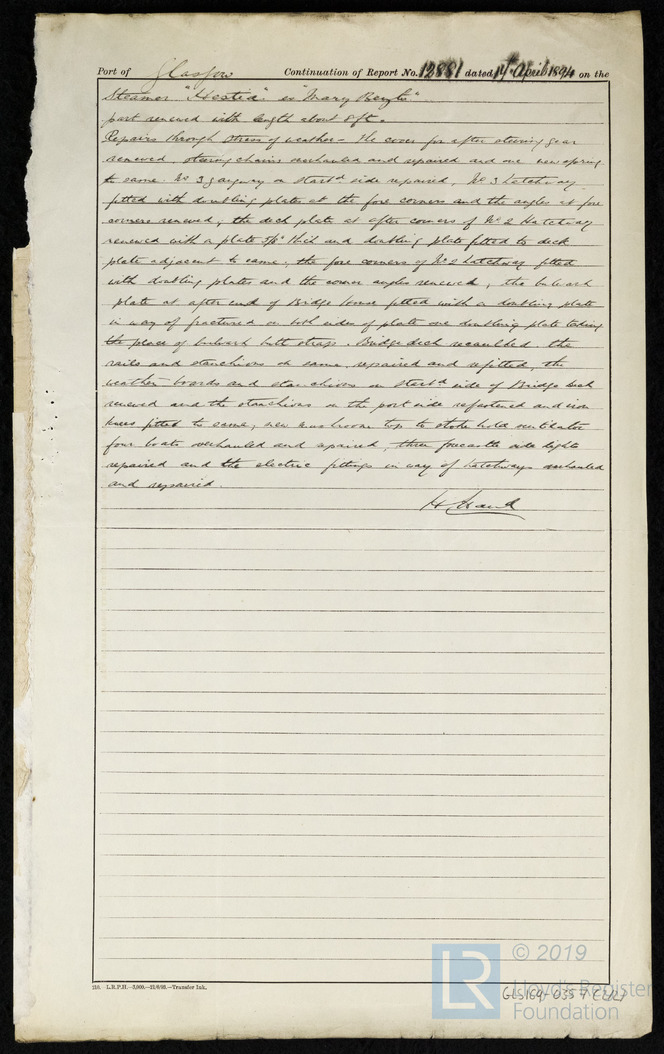 Port of Glasgow Continuation of Report No. 12881 dated 14th April 1894 on the
Steamer "Hestia" ex "Mary Beyts"
part renewed with length about 8 ft.
Repairs through stress of weather - The cover for after steering gear
renewed, steering chains overhauled and repaired and one new spring
to same. No 3 gangway on starbd side repaired, No 3 hatchway
fitted with doubling plates at the fore corners and the angles at fore
corners renewed, the deck plate at after corners of No. 2 Hatchway
renewed with a plate thick and doubling plate fitted to deck
plate adjacent to same, the fore corners of No 2 hatchway fitted
with doubling plates and the corner angles renewed, the bulwark
plate at after end of Bridge house fitted with a doubling plate
in way of fractured on both sides of plate one doubling plate taking
the place of bulwark butt strap. Bridge deck recaulked. the
rails and stanchions on same, repaired and refitted, the
weather boards and stanchions on starbd side of Bridge deck
renewed and the stanchions on the port side refastened and iron
knees fitted to same, new mushroom top to stoke hold ventilator
four boats overhauled and repaired, three forecastle side lights
repaired and the electric fittings in way of hatchways overhauled
and repaired.
210. L.R.P.H.—3,000.—21/6/93.—Transfer Ink.
LR
© 2019
Lloyd's Register
Foundation